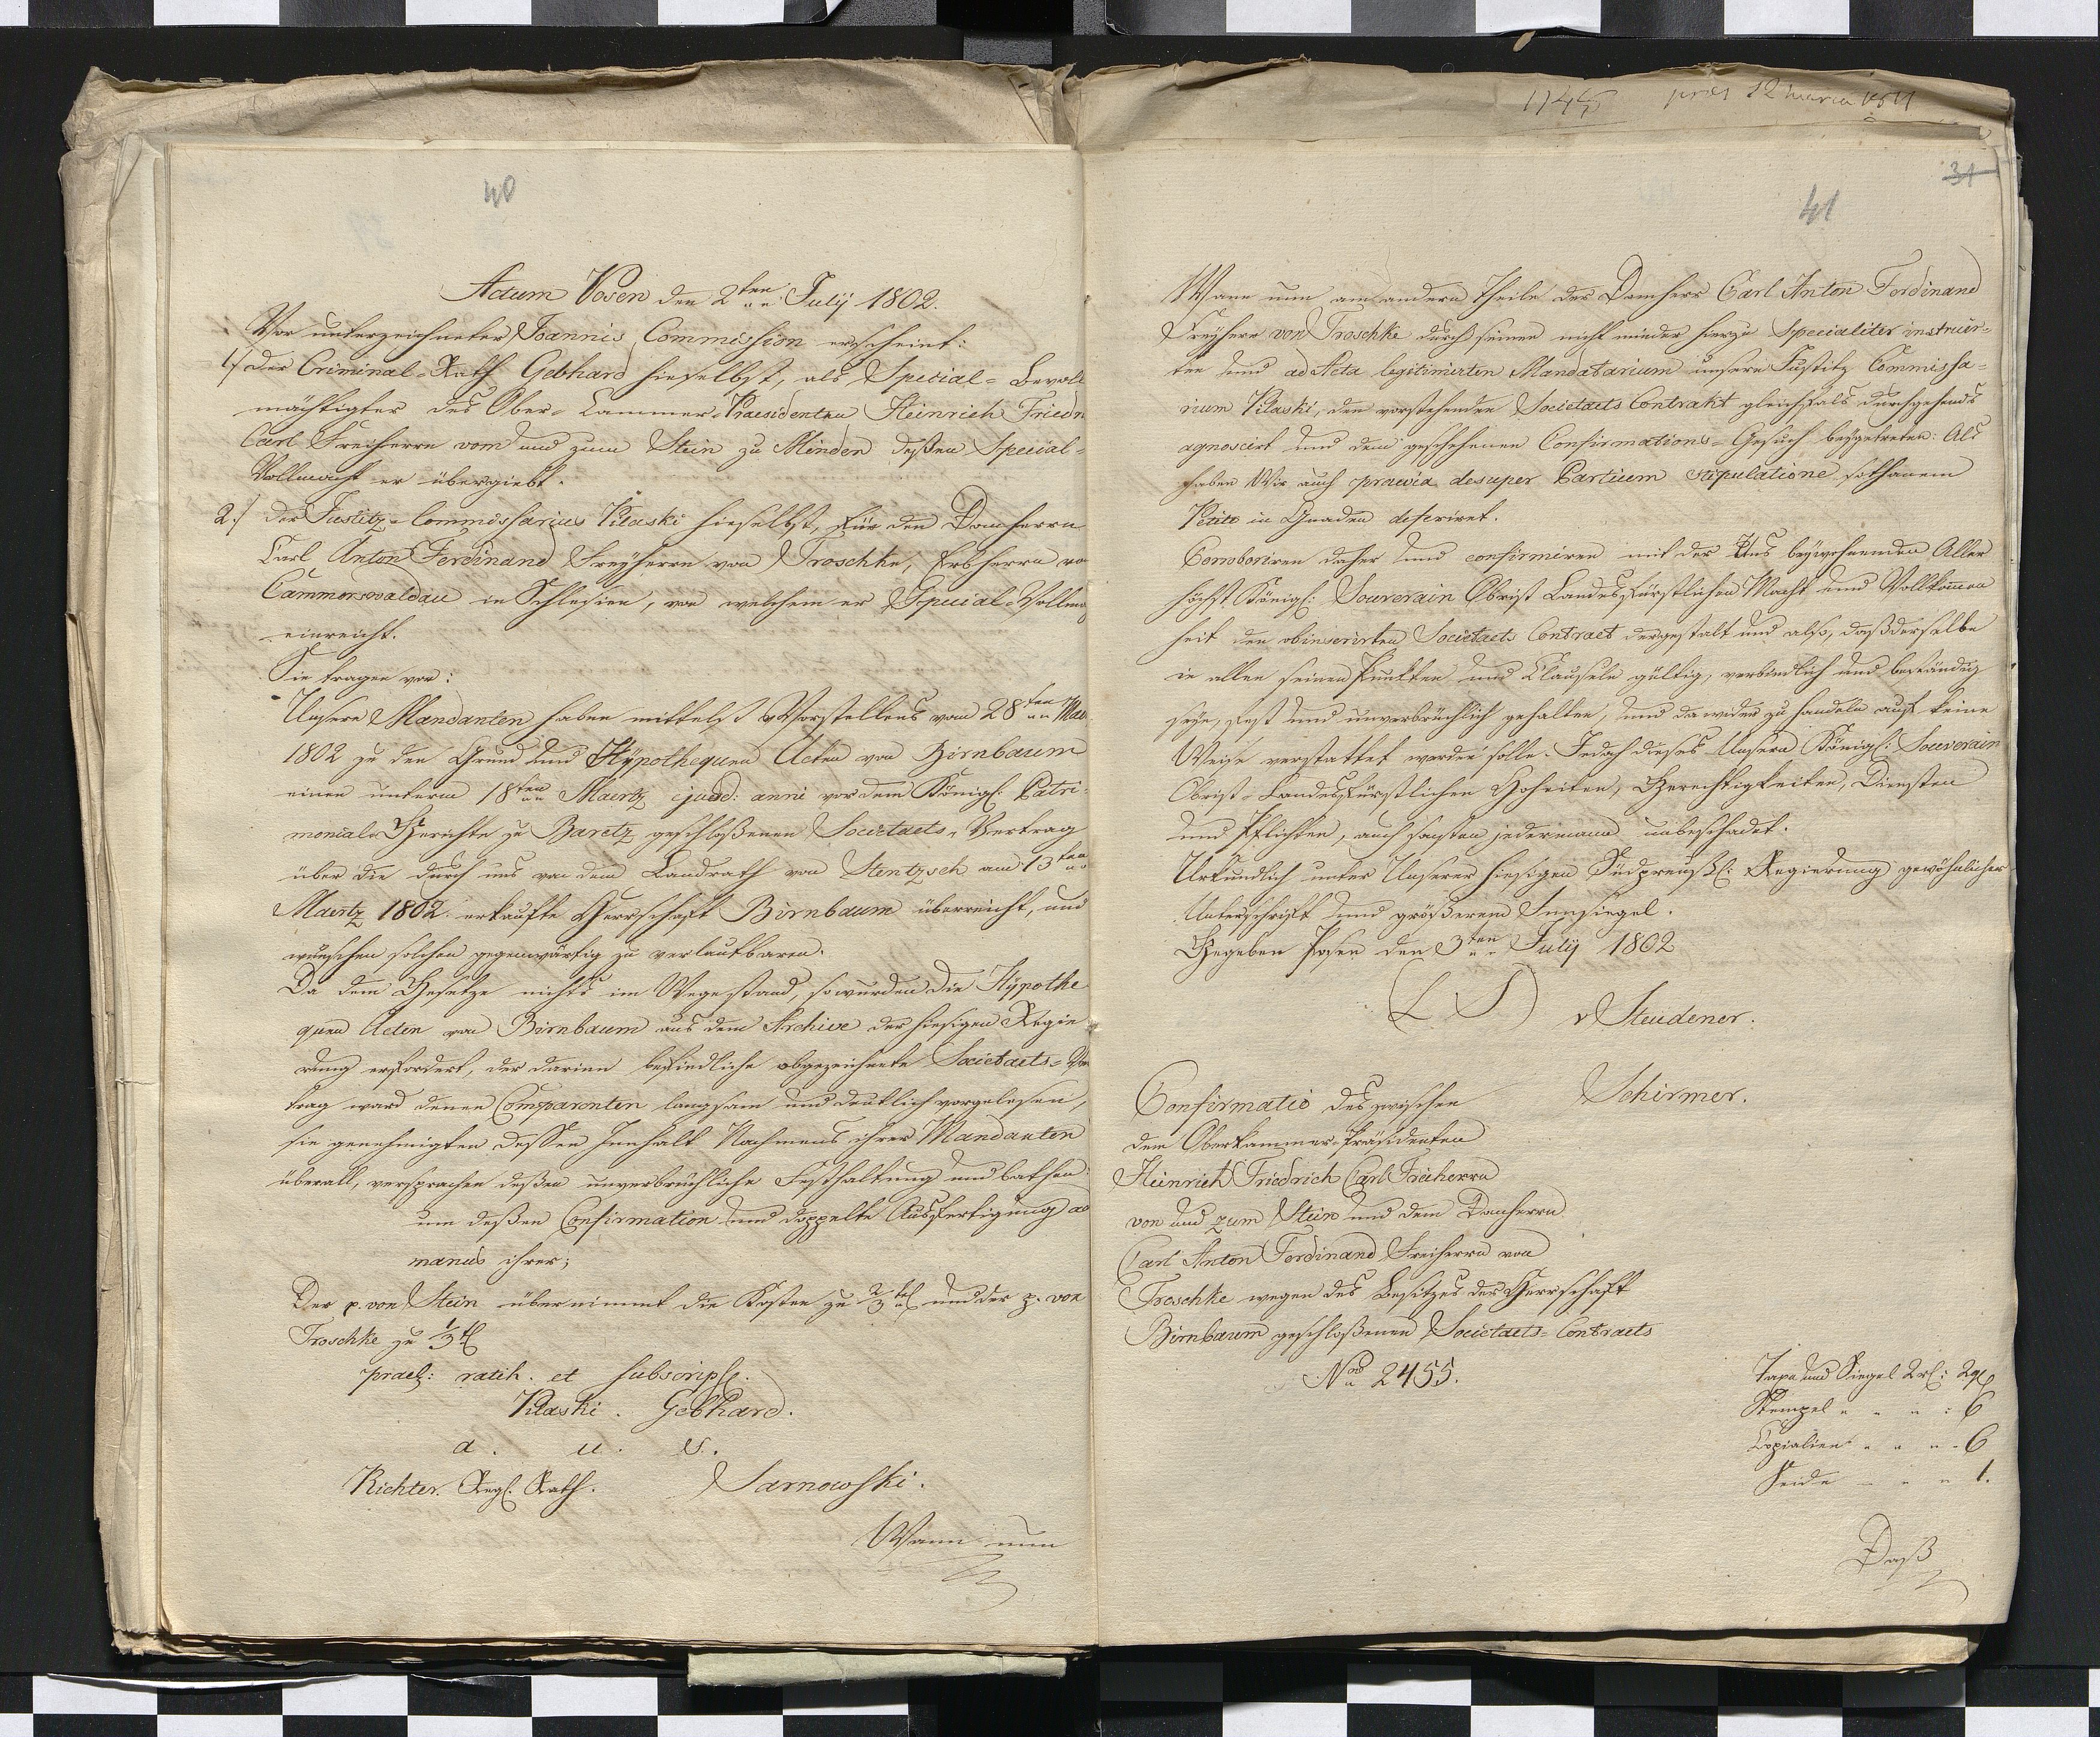 40
Actum Posen den 2ten July 1802.
Vor unterzeichneter Joannis Commission erscheint:
1/ der Criminal-Rath Gebhard hieselbst, als Special-Bevoll
mächtigter des Ober-Cammer-Praesidenten Heinrich Friedr
Carl Freiherrn vom und zum Stein zu Minden deßen Special-
Vollmacht er übergiebt.
2./ der Justitz-Commissarius Pilaski hieselbst, für den Domherrn
Carl Anton Ferdinand Freyherrn von Troschke, Erbherrn vo
Cammerswaldau in Schlesien, von welchem er Special-Vollma
einreicht.
Sie tragen vor:
Unsere Mandanten haben mittelst Vorstellens vom 28ten Mai
1802 zu den Grund und Hypothequen Acten von Birnbaum
einen unterm 18ten Maertz ejusd: anni vor dem Königl: Patri-
monial-Gerichte zu Baretz geschloßenen Societaets-Vertrag
über die durch uns von dem Landrath von Stentzsch am 13ten
Maertz 1802. erkaufte Herrschaft Birnbaum überreicht, und
wünschen solchen gegenwärtig zu verlautbaren.
Da dem Gesetze nichts im Wege stand, so wurden die Hypothe
quen Acten von Birnbaum aus dem Archive der hiesigen Regie
rung erfordert, der darinn befindliche abgezeichnete Societaets-Ver
trag ward denen Comparenten langsam und deutlich vorgelesen,
sie genehmigten deßen Innhalt Nahmens ihrer Mandanten
überall, versprachen deßen unverbrüchliche Festhaltung und bathen
um deßen Confirmation und doppelte Ausfertigung ad
manus ihrer;
Der p. von Stein übernimmt die Kosten zu 2/3tel und der p. von
Troschke zu 1/3tl
prael: ratih. et subscrips.
Pilaski. Gebhard.
a. u. s.
Richter. Regs. Rath. Sarnowski.
Wann nun
1145 prs 12 marca
31
41
Wann nun am andern Theile der Domherr Carl Anton Ferdinand
Freyherr von Troschke durch seinen nicht minder hierzu Specialiter instruir-
ten und ad Acta legitimirten Mandatarium unsern Justitz Commissa-
rium Pilaski, den vorstehenden Societaets Contrakt gleichfals durchgehends
agnoscirt und dem geschehenen Confirmations-Gesuch beygetreten: Als
haben Wir auch praevia desuper Partium stipulatione sothanem
Petito in Gnaden deferiret.
Corroboriren daher und confirmiren mit der Uns beywohnenden Aller
höchst Königl: Souverain Obrist Landesfürstlichen Macht und Vollkomen
heit den obinserirten Societaets Contract dergestalt und also, daß derselbe
in allen seinen Punkten und Clauseln gültig, verbindlich und beständig
seye, fest und unverbrüchlich gehalten, und da wider zu handeln auf keine
Weise verstattet werden solle. Jedoch dieses Unsern Königl: Souverain
Obrist-Landesfürstlichen Hoheiten, Gerechtigkeiten, Diensten
und Pflichten, auch sonsten jedermann unbeschadet.
Urkundlich unter Unserer hiesigen Südpreußl: Regierung gewöhnlicher
Unterschrift und größerem Innsiegel.
Gegeben Posen den 3ten July 1802
(L S) v Steudener.
Schirmer.
Confirmatio des zwischen
dem Oberkammer-Präsidenten
Heinrich Friedrich Carl Freiherrn
von und zum Stein und dem Domherrn
Carl Anton Ferdinand Freiherrn von
Troschke wegen des Besitzes der Herrschaft
Birnbaum geschloßenen Societaets-Contracts
No 2455.
Taxa und Siegel 2 rl: 2 gl
Stempel " " " : 6
Copialien " " " - 6
Seide - " " 1.
Daß